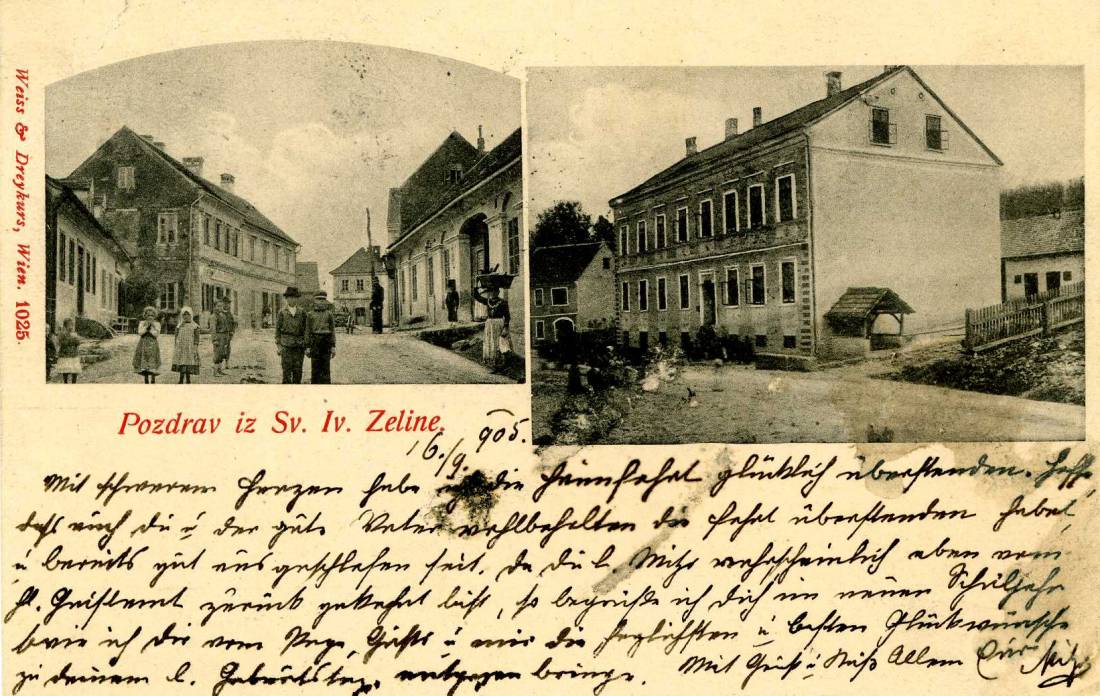 Weiss & Dreykurs, Wien. 1025.
Pozdrav iz Sv. Iv. Zeline.
16./9. 905.
Mit schwerem Herzen habe ich die Heimfahrt glücklich überstanden. Hoffe,
daß auch du u der gute Vater wohlbehalten die Fahrt überstanden habet
u bereits gut ausgeschlafen seit. Da du l. Mitzi wahrscheinlich eben vom
hl. Geistamt zurück gekehrt bist, so begrüße ich dich im neuen Schuljahr
wie ich dir vom Papa, u mir die herzlichsten u besten Glückwünsche
zu deinem l. Geburtstag, entgegen bringe. Mit Gruß u Kuß Allem Eure